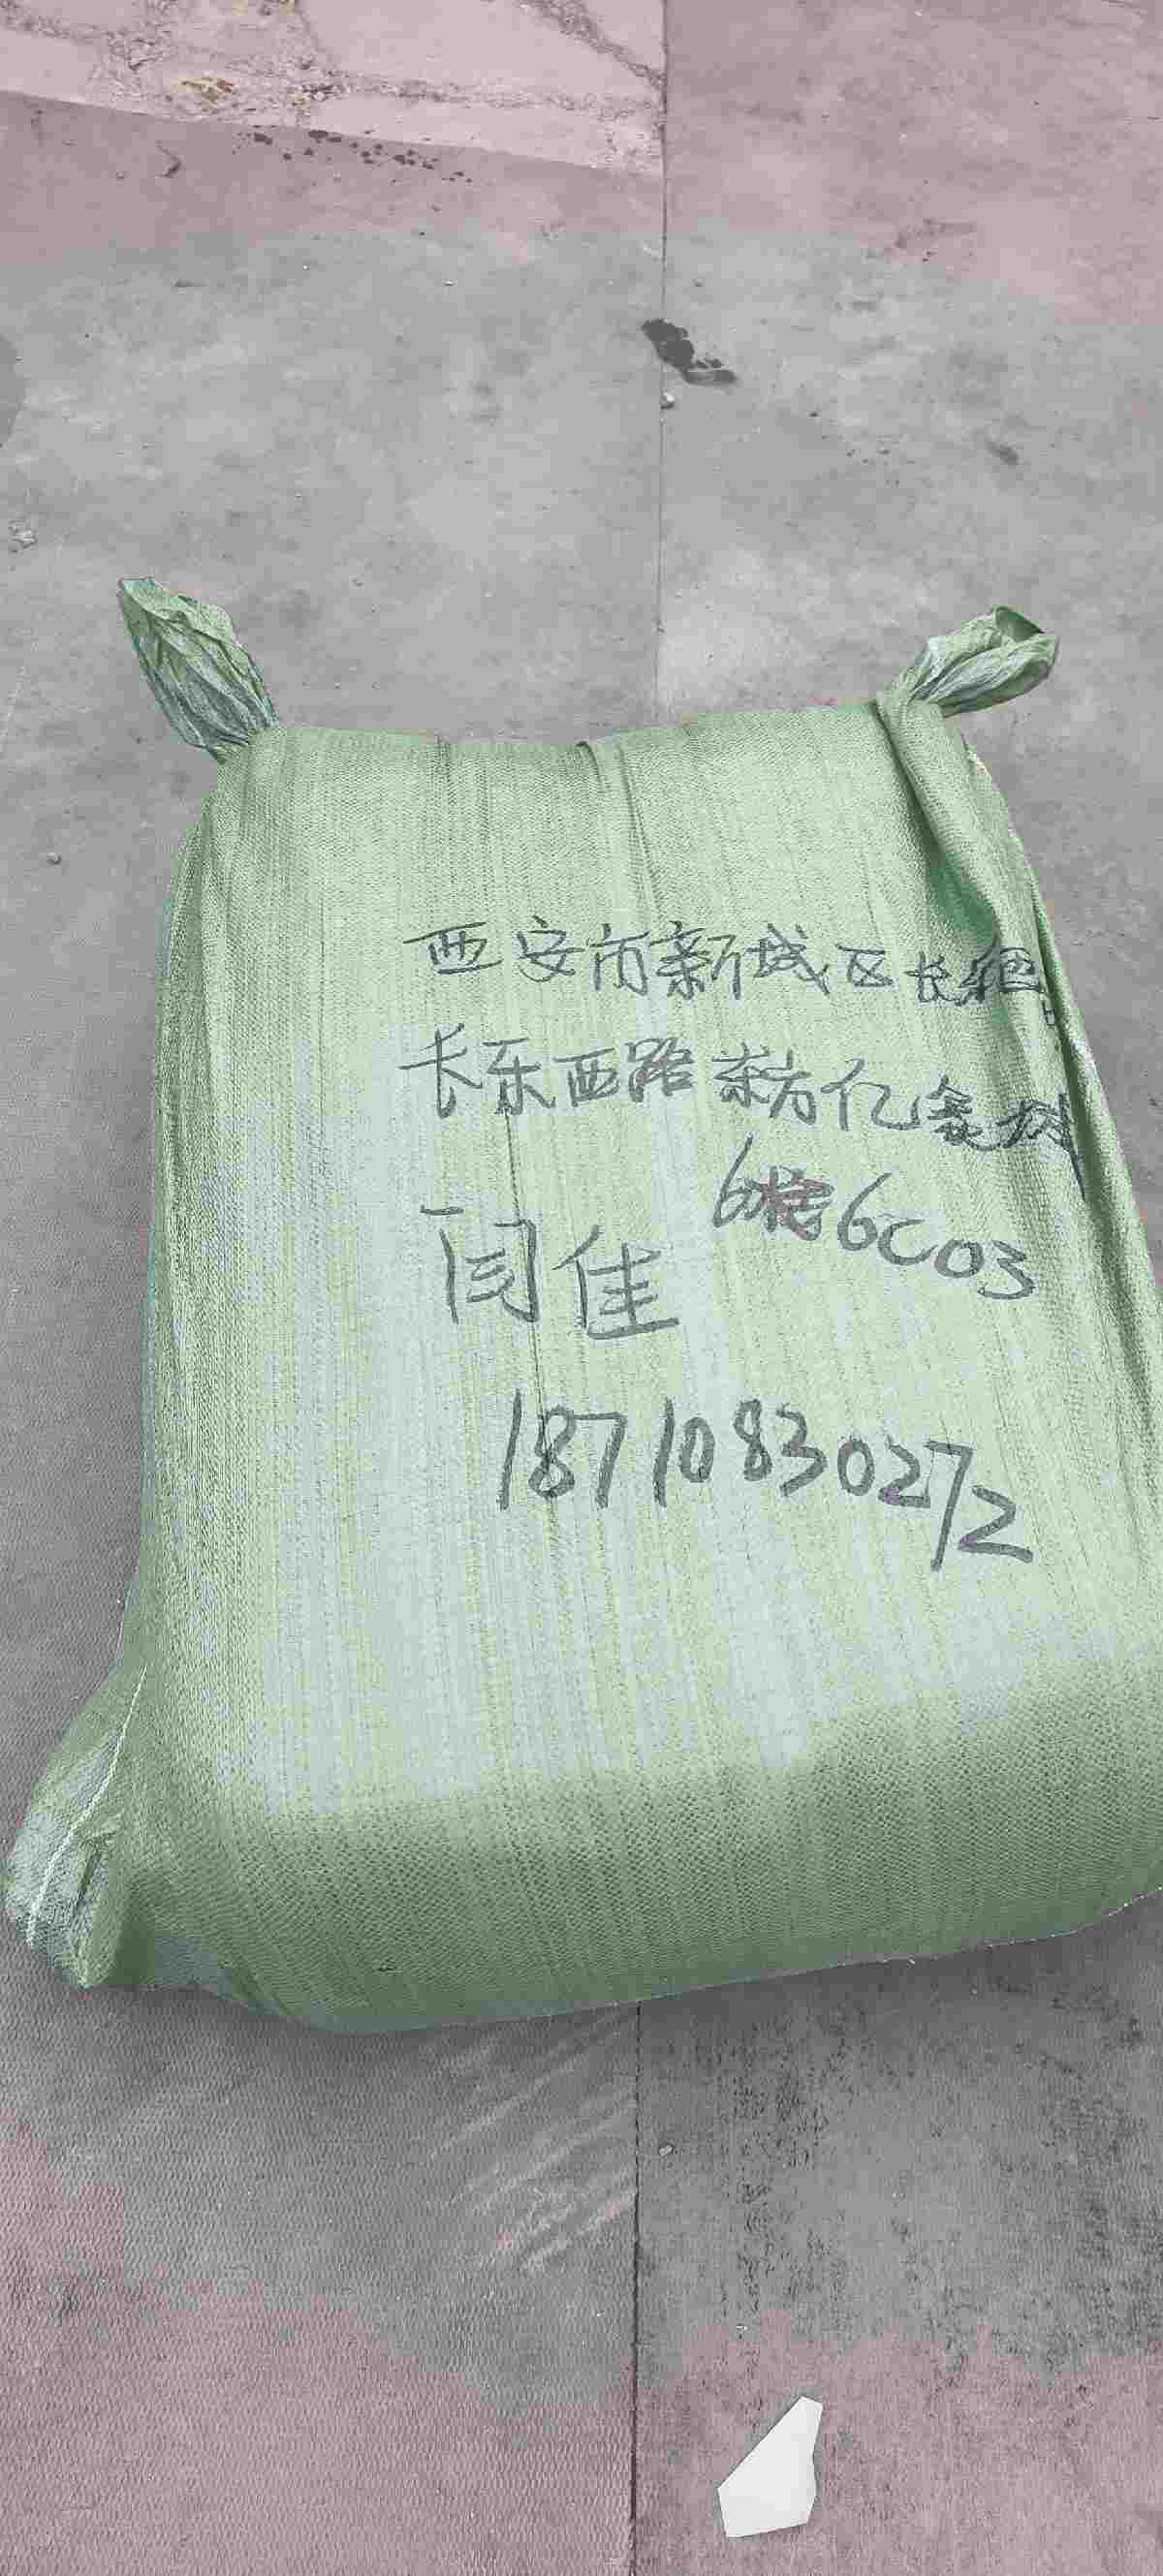 西安市新城区长乐西
长乐西路东方亿象城
6楼6C03
闫佳
18710830272